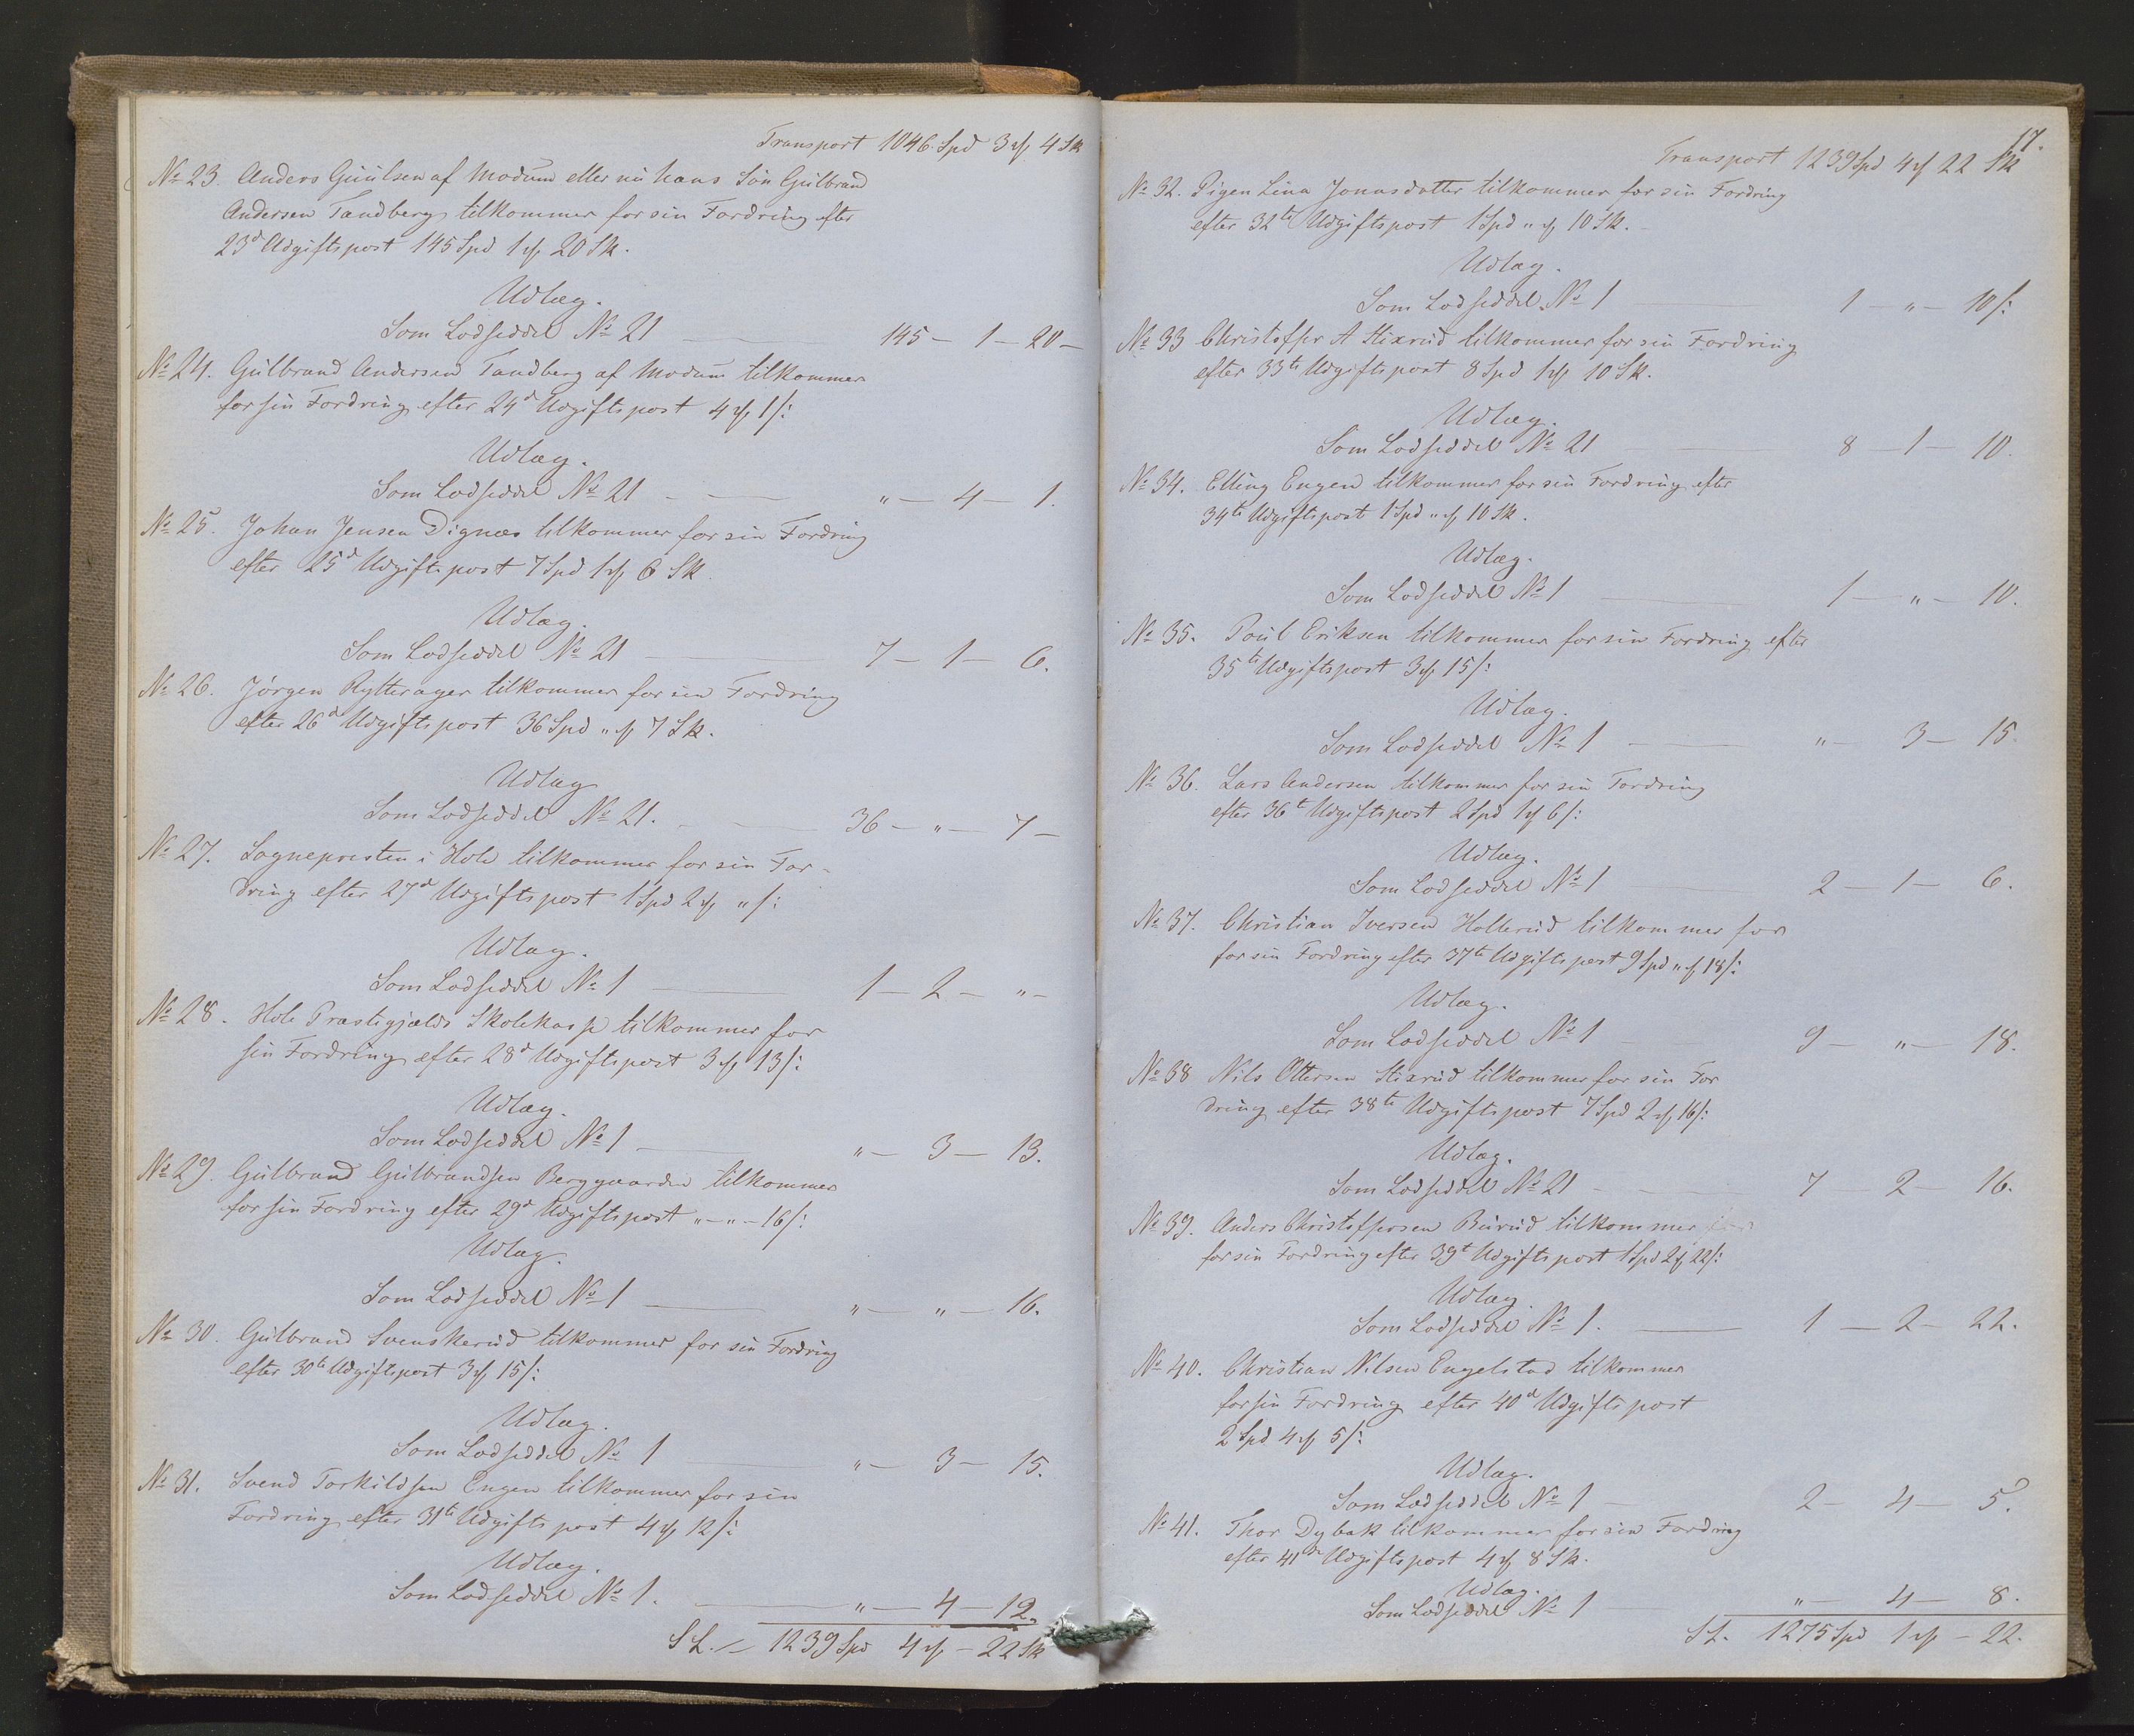 Transport 1046 Spd 3 ₰ 4 Sk
No 23. Anders Guulsen af Modum eller nu hans Søn Gulbrand
Andersen Tandberg tilkommer for sin Fordring efter
23d Udgiftspost 145 Spd 1 ₰ 20 Sk.
Udlæg.
Som Lodseddel No 21 145 – 1 – 20 –
No 24. Gulbrand Andersen Tandberg af Modum tilkommer
for sin Fordring efter 24d Udgiftspost 4 ₰ 1/:
Udlæg.
Som Lodseddel No 21 „ – 4 – 1.
No 25. Johan Jensen Dignæs tilkommer for sin Fordring
efter 25d Udgiftspost 7 Spd 1 ₰ 6 Sk.
Udlæg.
Som Lodseddel No 21 7 – 1 – 6.
No 26. Jørgen Rytterager tilkommer for sin Fordring
efter 26d Udgiftspost 36 Spd „ ₰ 7 Sk.
Udlæg
Som Lodseddel No 21. 36 – „ – 7 –
No 27. Sognepresten i Hole tilkommer for sin For-
dring efter 27d Udgiftspost 1 Spd 2 ₰ „ /:
Udlæg.
Som Lodseddel No 1 1 – 2 – „ –
No 28. Hole Præstegjælds Skolekasse tilkommer for
sin Fordring efter 28d Udgiftspost 3 ₰ 13/:
Udlæg.
Som Lodseddel No 1 „ – 3 – 13.
No 29. Gulbrand Gulbrandsen Berggaarden tilkommer
for sin Fordring efter 29d Udgiftspost „ – „ – 16/:
Udlæg.
Som Lodseddel No 1 „ – „ – 16.
No 30. Gulbrand Svenskerud tilkommer for sin Fordring
efter 30te Udgiftspost 3 ₰ 15/:
Udlæg.
Som Lodseddel No 1 „ – 3 – 15.
No 31. Svend Torkildsen Engen tilkommer for sin
Fordring efter 31te Udgiftspost 4 ₰ 12/:
Udlæg.
Som Lodseddel No 1. „ – 4 – 12.
S L. – 1239 Spd 4 ₰ – 22 Sk
17.
Transport 1239 Spd 4 ₰ 22 Sk
No 32. Pigen Lina Jonasdatter tilkommer for sin Fordring
efter 32te Udgiftspost 1 Spd „ ₰ 10 Sk.
Udlæg.
Som Lodseddel No 1 1 „ – 10/:
No 33 Christoffer A Stixrud tilkommer for sin Fordring
efter 33te Udgiftspost 8 Spd 1 ₰ 10 Sk.
Udlæg.
Som Lodseddel No 21 8 – 1 – 10.
No 34. Elling Engen tilkommer for sin Fordring efter
34te Udgiftspost 1 Spd „ ₰ 10 Sk.
Udlæg.
Som Lodseddel No 1 1 – „ – 10.
No 35. Poul Eriksen tilkommer for sin Fordring efter
35te Udgiftspost 3 ₰ 15/:
Udlæg.
Som Lodseddel No 1 „ – 3 – 15.
No 36. Lars Andersen tilkommer for sin Fordring
efter 36te Udgiftspost 2 Spd 1 ₰ 6/:
Udlæg.
Som Lodseddel No 1 2 – 1 – 6.
No 37. Christian Iversen Hollerud tilkommer for
for sin Fordring efter 37te Udgiftspost 9 Spd „ ₰ 18/:
Udlæg.
Som Lodseddel No 1 9 – „ – 18.
No 38 Nils Ottersen Stixrud tilkommer for sin For
dring efter 38te Udgiftspost 7 Spd 2 ₰ 16/:
Udlæg.
Som Lodseddel No 21 7 2 – 16.
No 39. Anders Christophersen Burud tilkommer
for sin Fordring efter 39t Udgiftspost 1 Spd 2 ₰ 22/:
Udlæg.
Som Lodseddel No 1. 1 – 2 – 22.
No 40. Christian Nilsen Engelstad tilkommer
for sin Fordring efter 40d Udgiftspost
2 Spd 4 ₰ 5/:
Udlæg.
Som Lodseddel No 1 2 – 4 – 5.
No 41. Thor Dybak tilkommer for sin Fordring
efter 41de Udgiftspost 4 ₰ 8 Sk.
Udlæg.
Som Lodseddel No 1 „ – 4 – 8.
S L. 1275 Spd 1 ₰ – 22.